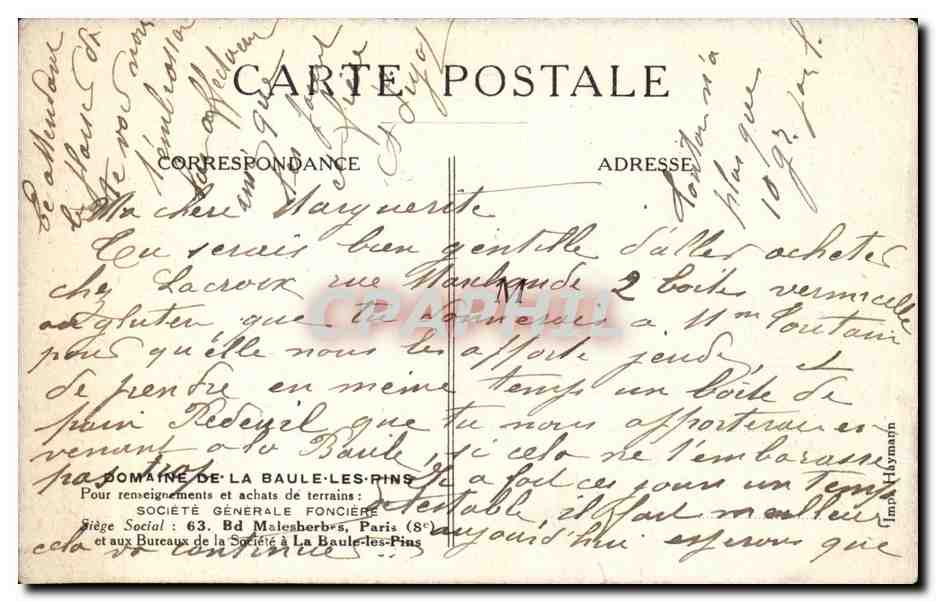 CARTE POSTALE
CORRESPONDANCE
ADRESSE
Ma chère Marguerite
Tu serais bien gentille d'aller acheter
chez Lacroix rue Marchande 2 boîtes vermicelle
au gluten, que tu donnerais à Mme Toutain
pour qu'elle nous les apporte jeudi, et
de prendre en même temps un boîte de
pain Redeuil que tu nous apporterais en
venant à la Baule, si cela ne t'embarasse
pas trop. Il a fait ces jours un temps
détestable, il fait meilleur
aujourd'hui espérons que
cela va continuer
En attendant
le plaisir de
te voir nous
t'embrassons
affectueu
ainsi que
ton
et
Toutain n'a
plus que
10 gr. par j.
DOMAINE·DE·LA BAULE·LES·PINS
Pour renseignements et achats de terrains :
SOCIÉTÉ GÉNÉRALE FONCIÈRE
Siège Social : 63, Bd Malesherbes, Paris (8e)
et aux Bureaux de la Société à La Baule-les-Pins
Imp. Haymann
M
CPAPHIL